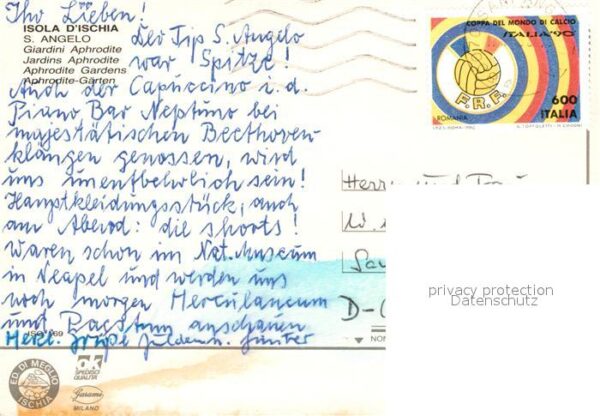 Ihr Lieben!
ISOLA D'ISCHIA
S. ANGELO
Giardini Aphrodite
Jardins Aphrodite
Aphrodite Gardens
Aphrodite-Gärten
Der Tip S. Angelo
war Spitze!
Auch der Capuccino i. d.
Piano Bar Neptuno bei
majestätischen Beethoven-
klängen genossen, wird
uns unentbehrlich sein!
Hauptkleidungsstück, auch
am Abend: die shorts!
Waren schon im Nat. Museum
in Neapel und werden uns
noch morgen Herculaneum
und Paestum anschauen
Herzl. Grüße Günter
COPPA DEL MONDO DI CALCIO
ITALIA '90
F.R.F.
ROMANIA
600
ITALIA
Herrn und
D-
privacy protection
Datenschutz
ED. DI MEGLIO
ISCHIA
OK
SPECIGO
QUALITA
Garami
MILANO